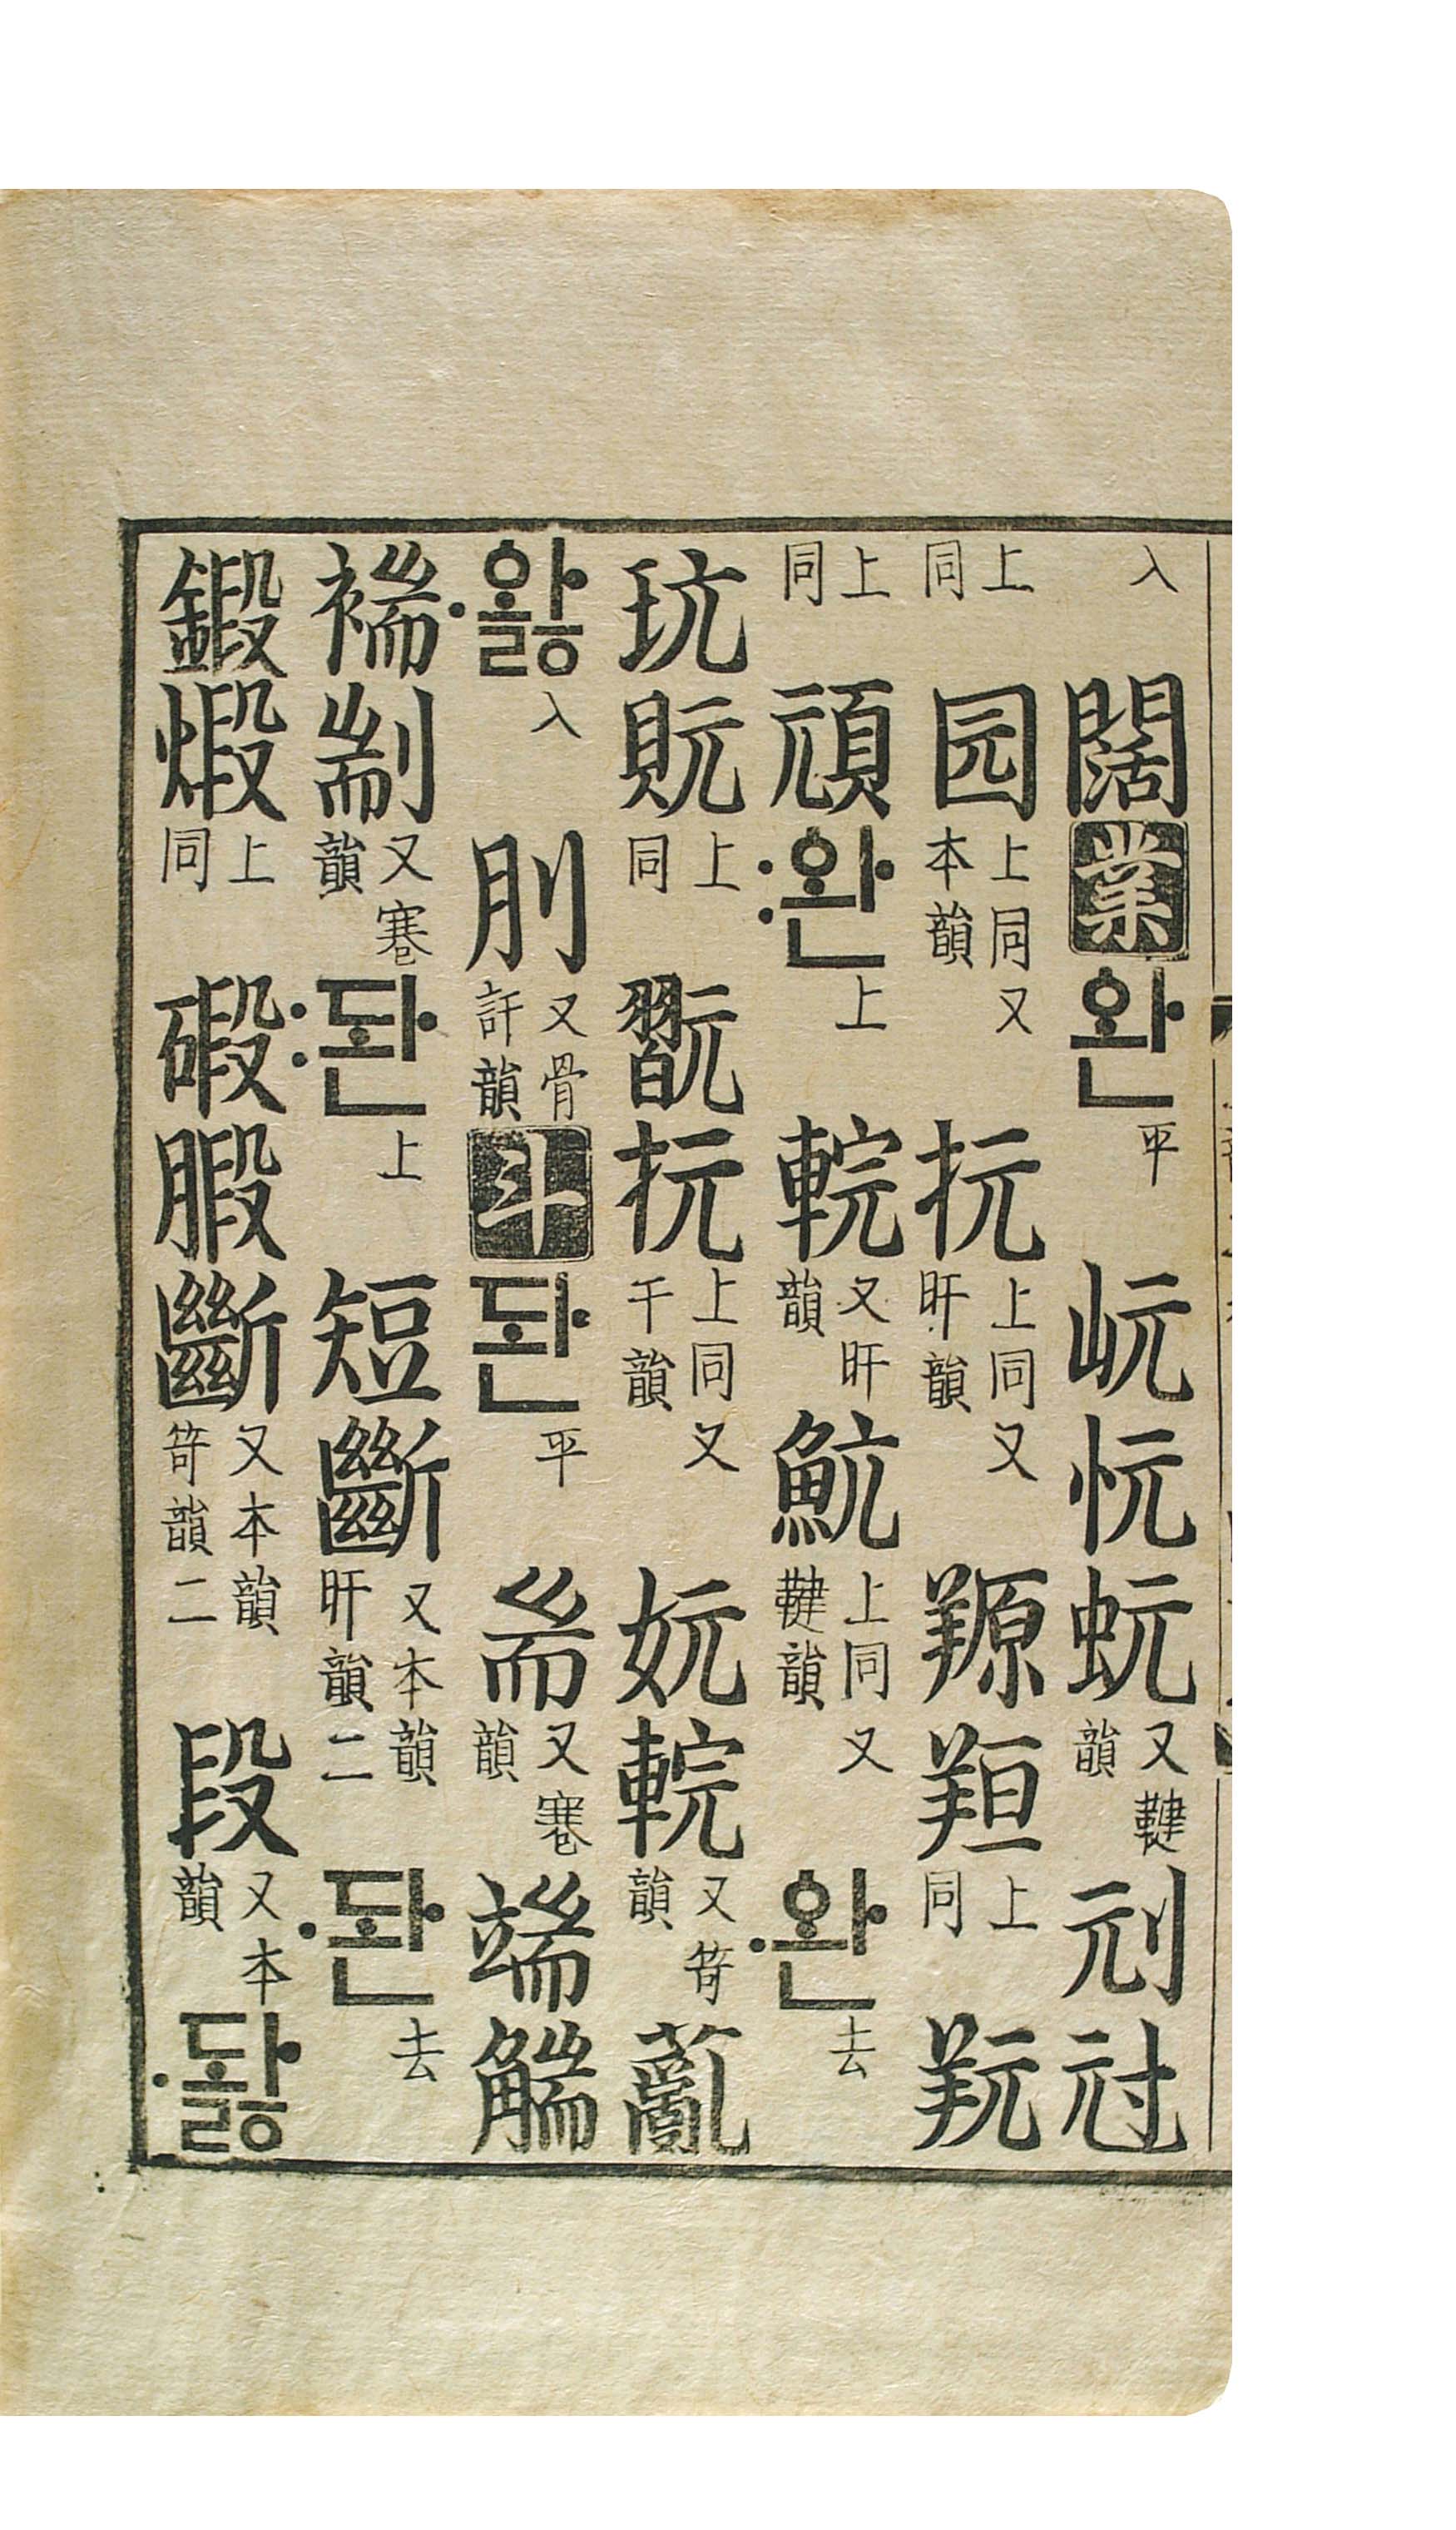 入 闊 業 ᅌᅪᆫ 平 岏 忨 蚖 又鞬韻 刓
上同 园 上同又本韻 抏 上同又旰韻 羱 上同
上同 頑 ᅌᅪᆫ〯 上 輐 又旰韻 魭 上同又鞬韻 ᅌᅪᆫ〮 去
玩 貦 上同 翫 抏 上同又干韻 妧 輐 又笴韻 薍
ᅌᅪᇙ〮 入 刖 又骨訐韻 斗 돤 平 耑 又寋韻 端
褍 剬 又寋韻 돤〯 上 短 斷 又本韻旰韻二 돤〮 去
鍛 煅 上同 碫 腶 斷 又本韻笴韻二 段 又本韻 돠ᇙ〮